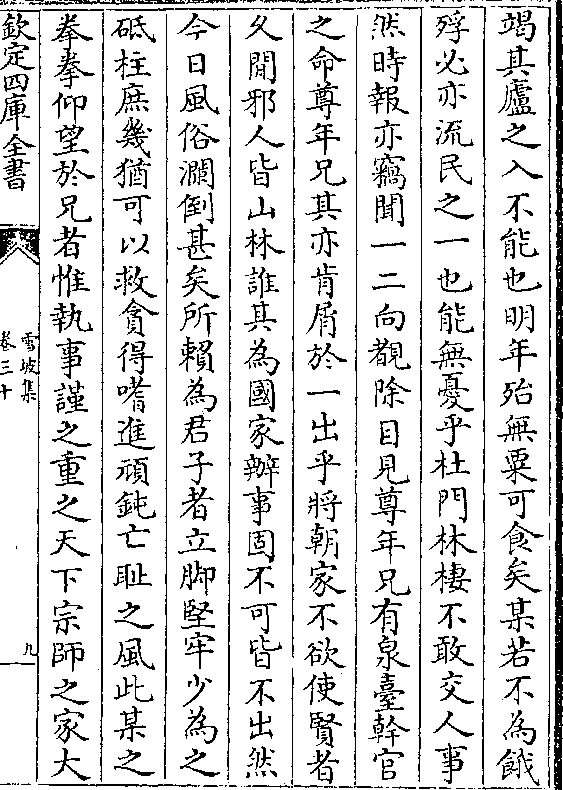 竭其廬之入不能也明年殆無粟可食矣某若不為餓
殍必亦流民之一也能無憂乎杜門林棲不敢交人事
然時報亦竊聞一二向覩除目見尊年兄有泉臺幹官
之命尊年兄其亦肯屑於一出乎將朝家不欲使賢者
久閒邪人皆山林誰其為國家辦事固不可皆不出然
今日風俗瀾倒甚矣所賴為君子者立脚堅牢少為之
砥柱庶幾猶可以救貪得嗜進頑鈍亡恥之風此某之
拳拳仰望於兄者惟執事謹之重之天下宗師之家大
欽定四庫全書
雪坡集
卷三十
九